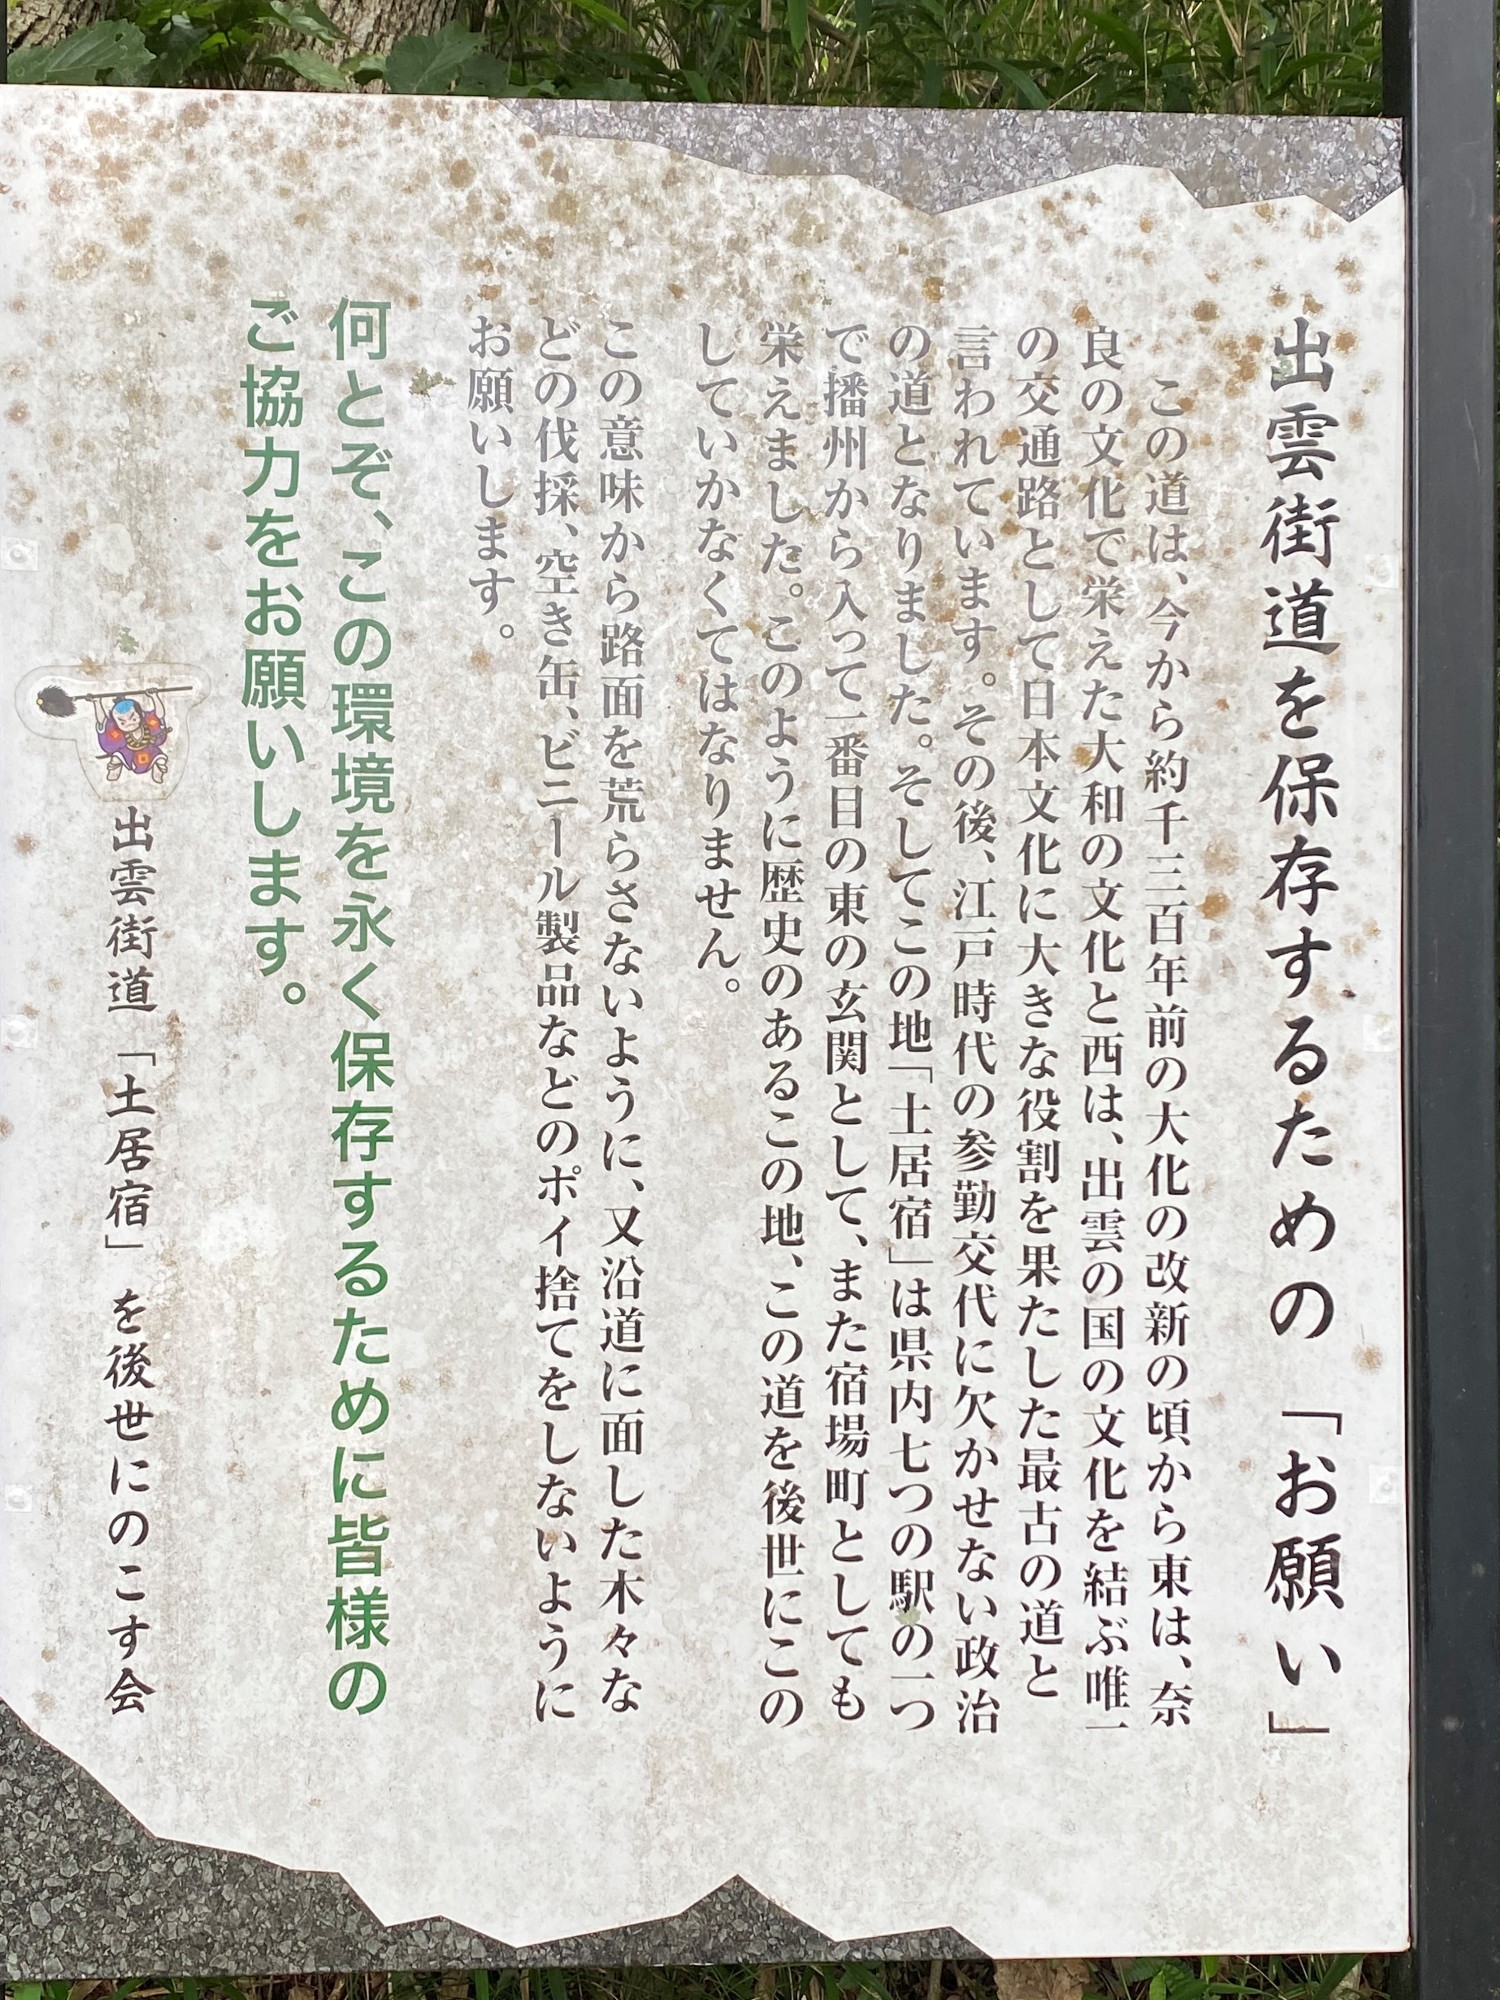 出雲街道を保存するための「お願い」
この道は、今から約千三百年前の大化の改新の頃から東は、奈
良の文化で栄えた大和の文化と西は、出雲の国の文化を結ぶ唯一
の交通路として日本文化に大きな役割を果たした最古の道と
言われています。その後、江戸時代の参勤交代に欠かせない政治
の道となりました。そしてこの地「土居宿」は県内七つの駅の一つ
で播州から入って一番目の東の玄関として、また宿場町としても
栄えました。このように歴史のあるこの地、この道を後世にこの
していかなくてはなりません。
この意味から路面を荒らさないように、又沿道に面した木々な
どの伐採、空き缶、ビニール製品などのポイ捨てをしないように
お願いします。
何とぞ、この環境を永く保存するために皆様の
ご協力をお願いします。
出雲街道「土居宿」を後世にのこす会